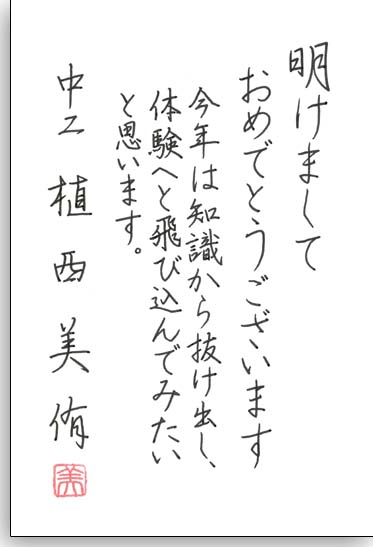 明けまして
おめでとうございます
今年は知識から抜け出し、
体験へと飛び込んでみたい
と思います。
中二 植西美侑
美